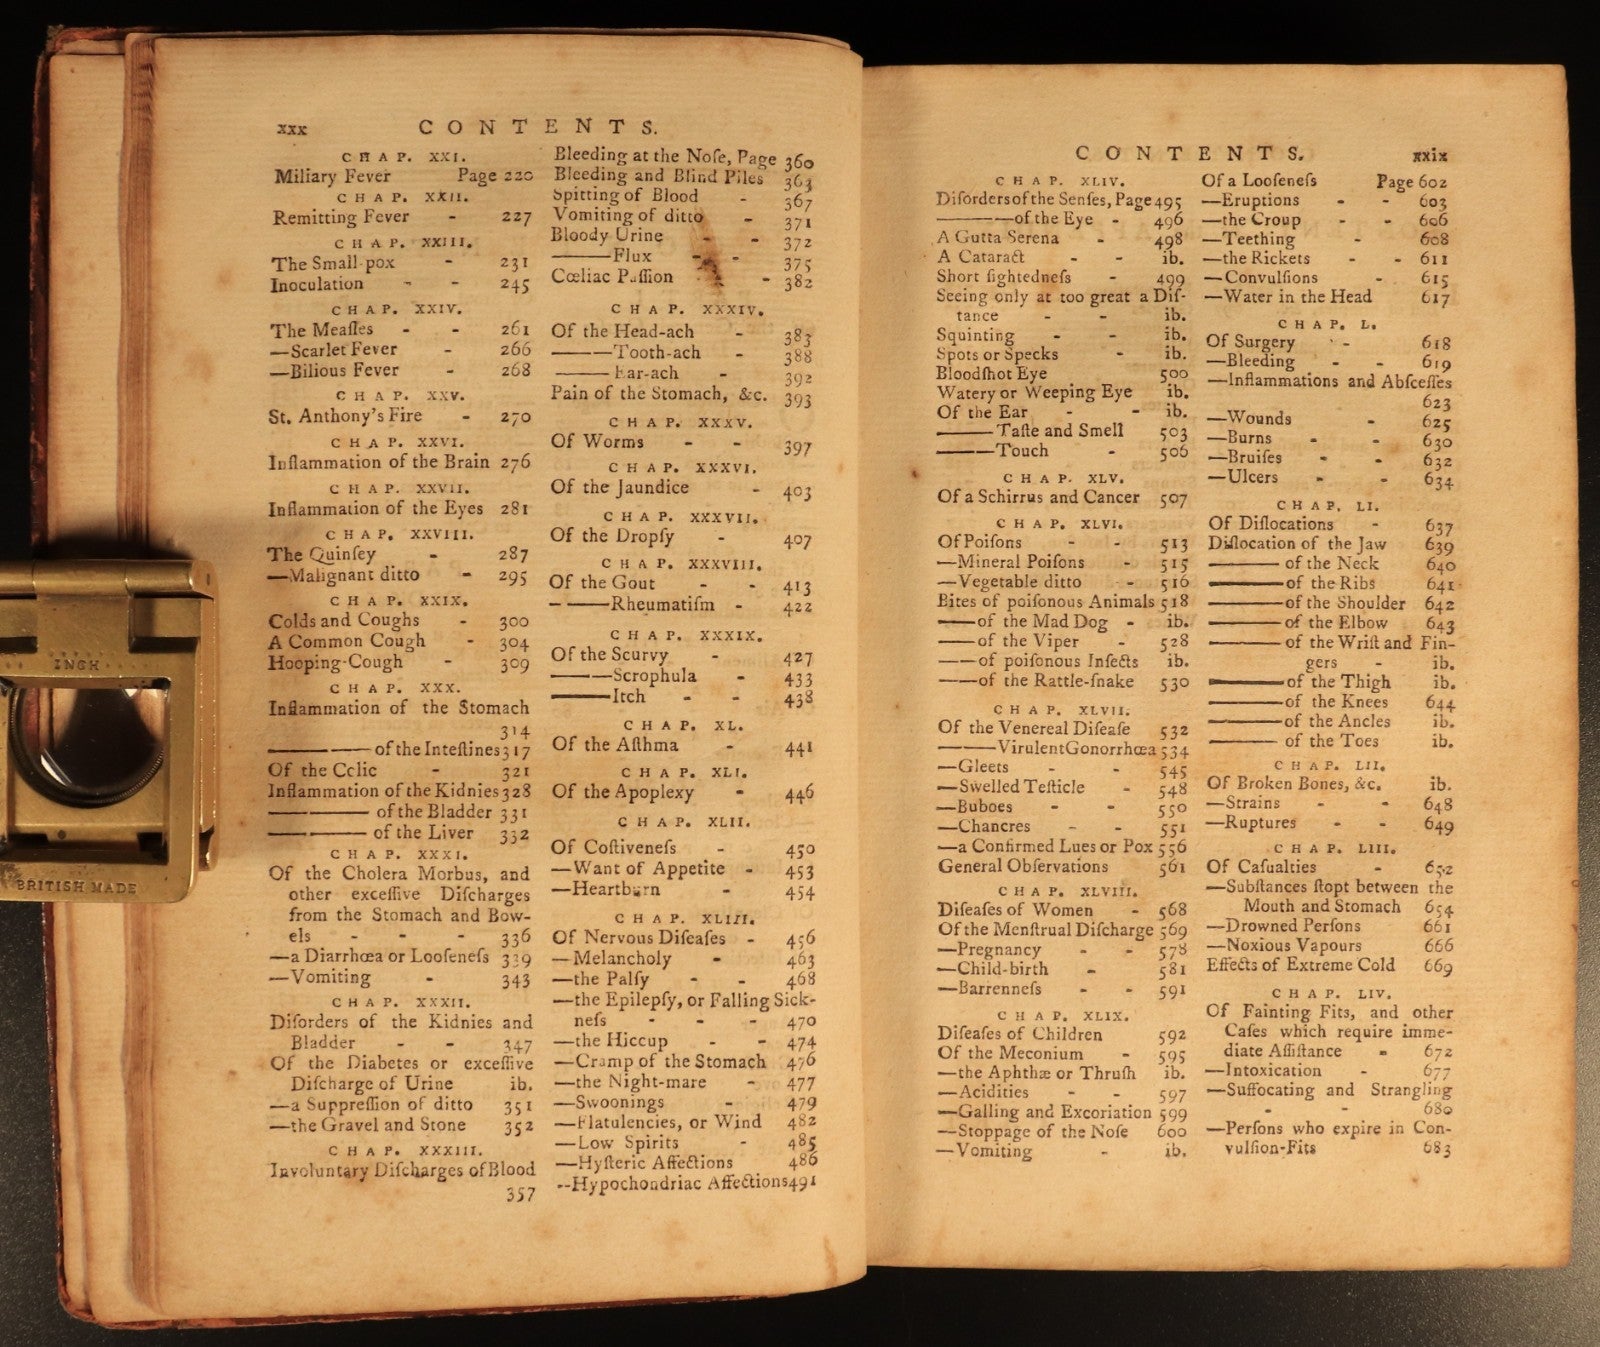 INCH
BRITISH MADE
xxx
CONTENTS.
CHAP. XXI.
Miliary Fever Page 220
CHAP. XXII.
Remitting Fever - 227
CHAP. XXIII.
The Small-pox - 231
Inoculation - - 245
CHAP. XXIV.
The Meaſles - - 261
—Scarlet Fever - 266
—Bilious Fever - 268
CHAP. XXV.
St. Anthony's Fire - 270
CHAP. XXVI.
Inflammation of the Brain 276
CHAP. XXVII.
Inflammation of the Eyes 281
CHAP. XXVIII.
The Quinſey - 287
—Malignant ditto - 295
CHAP. XXIX.
Colds and Coughs - 300
A Common Cough - 304
Hooping-Cough - 309
CHAP. XXX.
Inflammation of the Stomach
314
——— of the Inteſtines 317
Of the Colic - 321
Inflammation of the Kidnies 328
——— of the Bladder 331
——— of the Liver 332
CHAP. XXXI.
Of the Cholera Morbus, and
other exceſſive Diſcharges
from the Stomach and Bow-
els - - - 336
—a Diarrhœa or Looſeneſs 339
—Vomiting - 343
CHAP. XXXII.
Diſorders of the Kidnies and
Bladder - - 347
Of the Diabetes or exceſſive
Diſcharge of Urine ib.
—a Suppreſſion of ditto 351
—the Gravel and Stone 352
CHAP. XXXIII.
Involuntary Diſcharges of Blood
357
Bleeding at the Noſe, Page 360
Bleeding and Blind Piles 363
Spitting of Blood - 367
Vomiting of ditto - 371
Bloody Urine - - 372
———Flux - - 375
Cœliac Paſſion - 382
CHAP. XXXIV.
Of the Head-ach - 383
———Tooth-ach - 388
——— Ear-ach - 392
Pain of the Stomach, &c. 393
CHAP. XXXV.
Of Worms - - 397
CHAP. XXXVI.
Of the Jaundice - 403
CHAP. XXXVII.
Of the Dropſy - 407
CHAP. XXXVIII.
Of the Gout - - 413
———Rheumatiſm - 422
CHAP. XXXIX.
Of the Scurvy - 427
———Scrophula - 433
———Itch - - 438
CHAP. XL.
Of the Aſthma - 441
CHAP. XLI.
Of the Apoplexy - 446
CHAP. XLII.
Of Coſtiveneſs - 450
—Want of Appetite - 453
—Heartburn - 454
CHAP. XLIII.
Of Nervous Diſeaſes - 456
—Melancholy - 463
—the Palſy - - 468
—the Epilepſy, or Falling Sick-
neſs - - - 470
—the Hiccup - - 474
—Cramp of the Stomach 476
—the Night-mare - 477
—Swoonings - 479
—Flatulencies, or Wind 482
—Low Spirits - 485
—Hyſteric Affections 486
--Hypochondriac Affections 491
CONTENTS.
xxix
CHAP. XLIV.
Diſorders of the Senſes, Page 495
———of the Eye - 496
A Gutta Serena - 498
A Cataract - - ib.
Short ſightedneſs - 499
Seeing only at too great a Diſ-
tance - - ib.
Squinting - - ib.
Spots or Specks - ib.
Bloodſhot Eye 500
Watery or Weeping Eye ib.
Of the Ear - - ib.
——— Taſte and Smell 503
———Touch - 506
CHAP. XLV.
Of a Schirrus and Cancer 507
CHAP. XLVI.
Of Poiſons - - 513
—Mineral Poiſons - 515
—Vegetable ditto - 516
Bites of poiſonous Animals 518
——of the Mad Dog - ib.
——of the Viper - 528
——of poiſonous Inſects ib.
——of the Rattle-ſnake 530
CHAP. XLVII.
Of the Venereal Diſeaſe 532
———Virulent Gonorrhœa 534
—Gleets - - 545
—Swelled Teſticle - 548
—Buboes - - 550
—Chancres - - 551
—a Confirmed Lues or Pox 556
General Obſervations 561
CHAP. XLVIII.
Diſeaſes of Women - 568
Of the Menſtrual Diſcharge 569
—Pregnancy - - 578
—Child-birth - 581
—Barrenneſs - - 591
CHAP. XLIX.
Diſeaſes of Children 592
Of the Meconium - 595
—the Aphthæ or Thruſh ib.
—Acidities - - 597
—Galling and Excoriation 599
—Stoppage of the Noſe 600
—Vomiting - ib.
Of a Looſeneſs Page 602
—Eruptions - - 603
—the Croup - - 606
—Teething - 608
—the Rickets - - 611
—Convulſions - 615
—Water in the Head 617
CHAP. L.
Of Surgery - 618
—Bleeding - - 619
—Inflammations and Abſceſſes
623
—Wounds - 625
—Burns - - 630
—Bruiſes - - 632
—Ulcers - - 634
CHAP. LI.
Of Diſlocations - 637
Diſlocation of the Jaw 639
——— of the Neck 640
——— of the Ribs 641
——— of the Shoulder 642
——— of the Elbow 643
——— of the Wriſt and Fin-
gers - ib.
——— of the Thigh ib.
——— of the Knees 644
——— of the Ancles ib.
——— of the Toes ib.
CHAP. LII.
Of Broken Bones, &c. ib.
—Strains - - 648
—Ruptures - - 649
CHAP. LIII.
Of Caſualties - 652
—Subſtances ſtopt between the
Mouth and Stomach 654
—Drowned Perſons 661
—Noxious Vapours 666
Effects of Extreme Cold 669
CHAP. LIV.
Of Fainting Fits, and other
Caſes which require imme-
diate Aſſiſtance - 672
—Intoxication - 677
—Suffocating and Strangling
- - 680
—Perſons who expire in Con-
vulſion-Fits 683